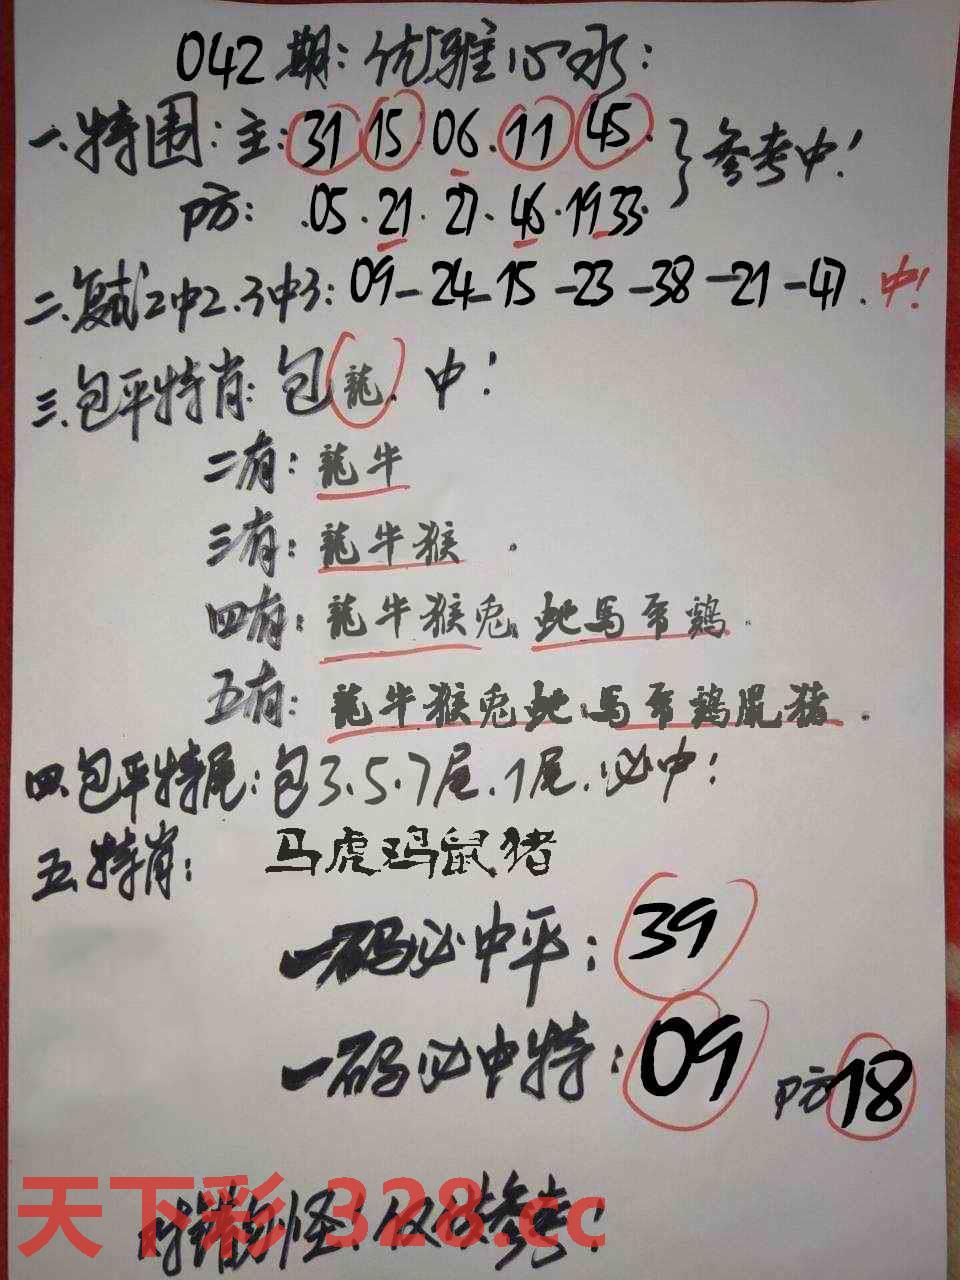 042期:优雅心水:
一.特围:主:31 15 06.11 45. 参考中!
防: .05.21.27.46.19 33.
二.复试2中2.3中3: 09-24-15-23-38-21-47.中!
三.包平特肖:包龍.中!
二有:龍牛
三有:龍牛猴.
四有:龍牛猴兎蛇馬帍鷄.
五有:龍牛猴兎蛇馬帍鷄鼠猪.
四.包平特尾:包3.5.7尾.1尾.必中!
五.特肖: 马虎鸡鼠猪
一码必中平:39
一码必中特:09 防18
对错勿怪!仅供参考!
天下彩 328.cc